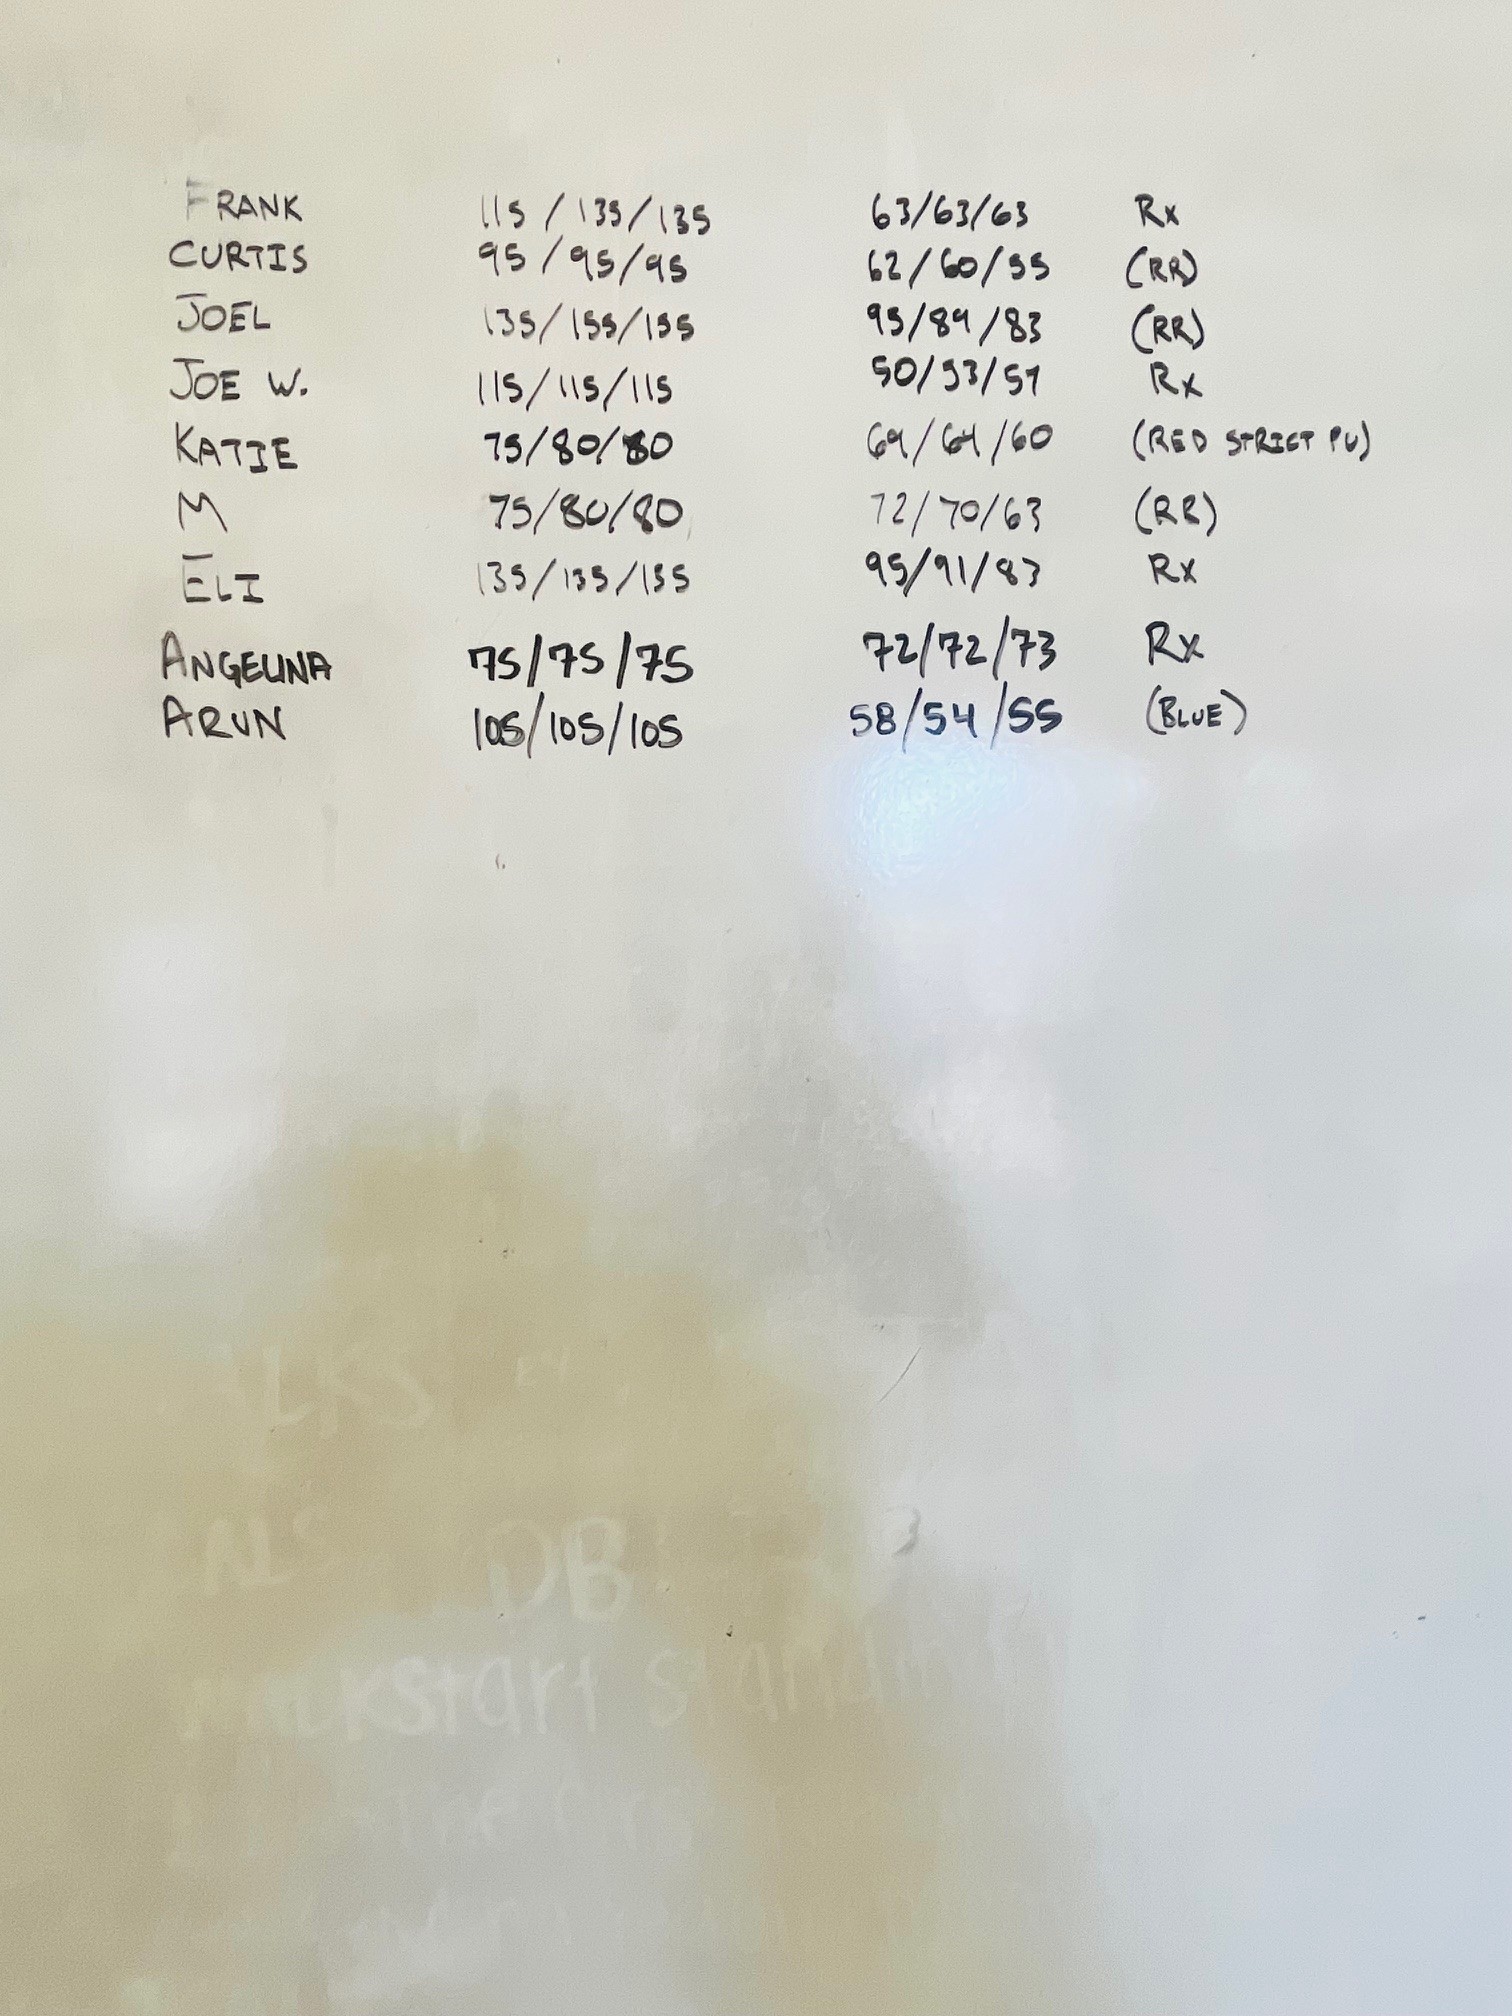 FRANK 115/135/135 63/63/63 Rx
CURTIS 95/95/95 62/60/55 (RR)
JOEL 135/155/155 95/89/83 (RR)
JOE W. 115/115/115 50/53/51 Rx
KATIE 75/80/80 69/64/60 (RED STRICT PU)
M 75/80/80 72/70/63 (RR)
ELI 135/135/135 95/91/83 Rx
ANGELINA 75/75/75 72/72/73 Rx
ARUN 105/105/105 58/54/55 (BLUE)
DB